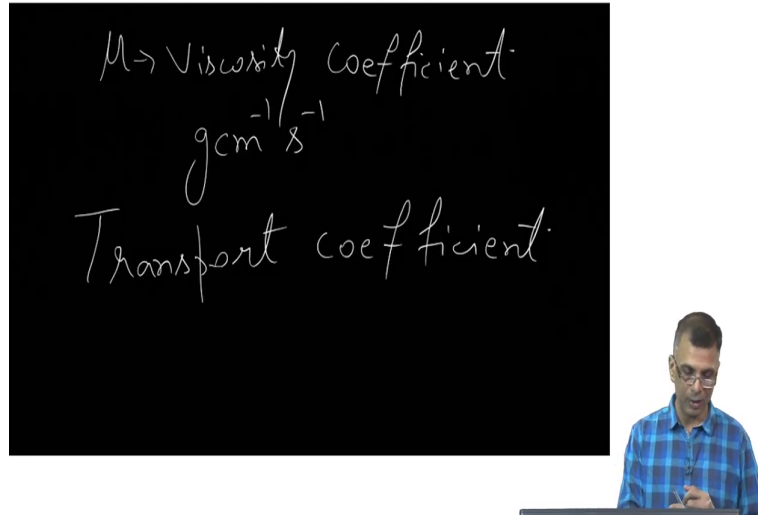 μ → Viscosity coefficient
g cm⁻¹ s⁻¹
Transport coefficient